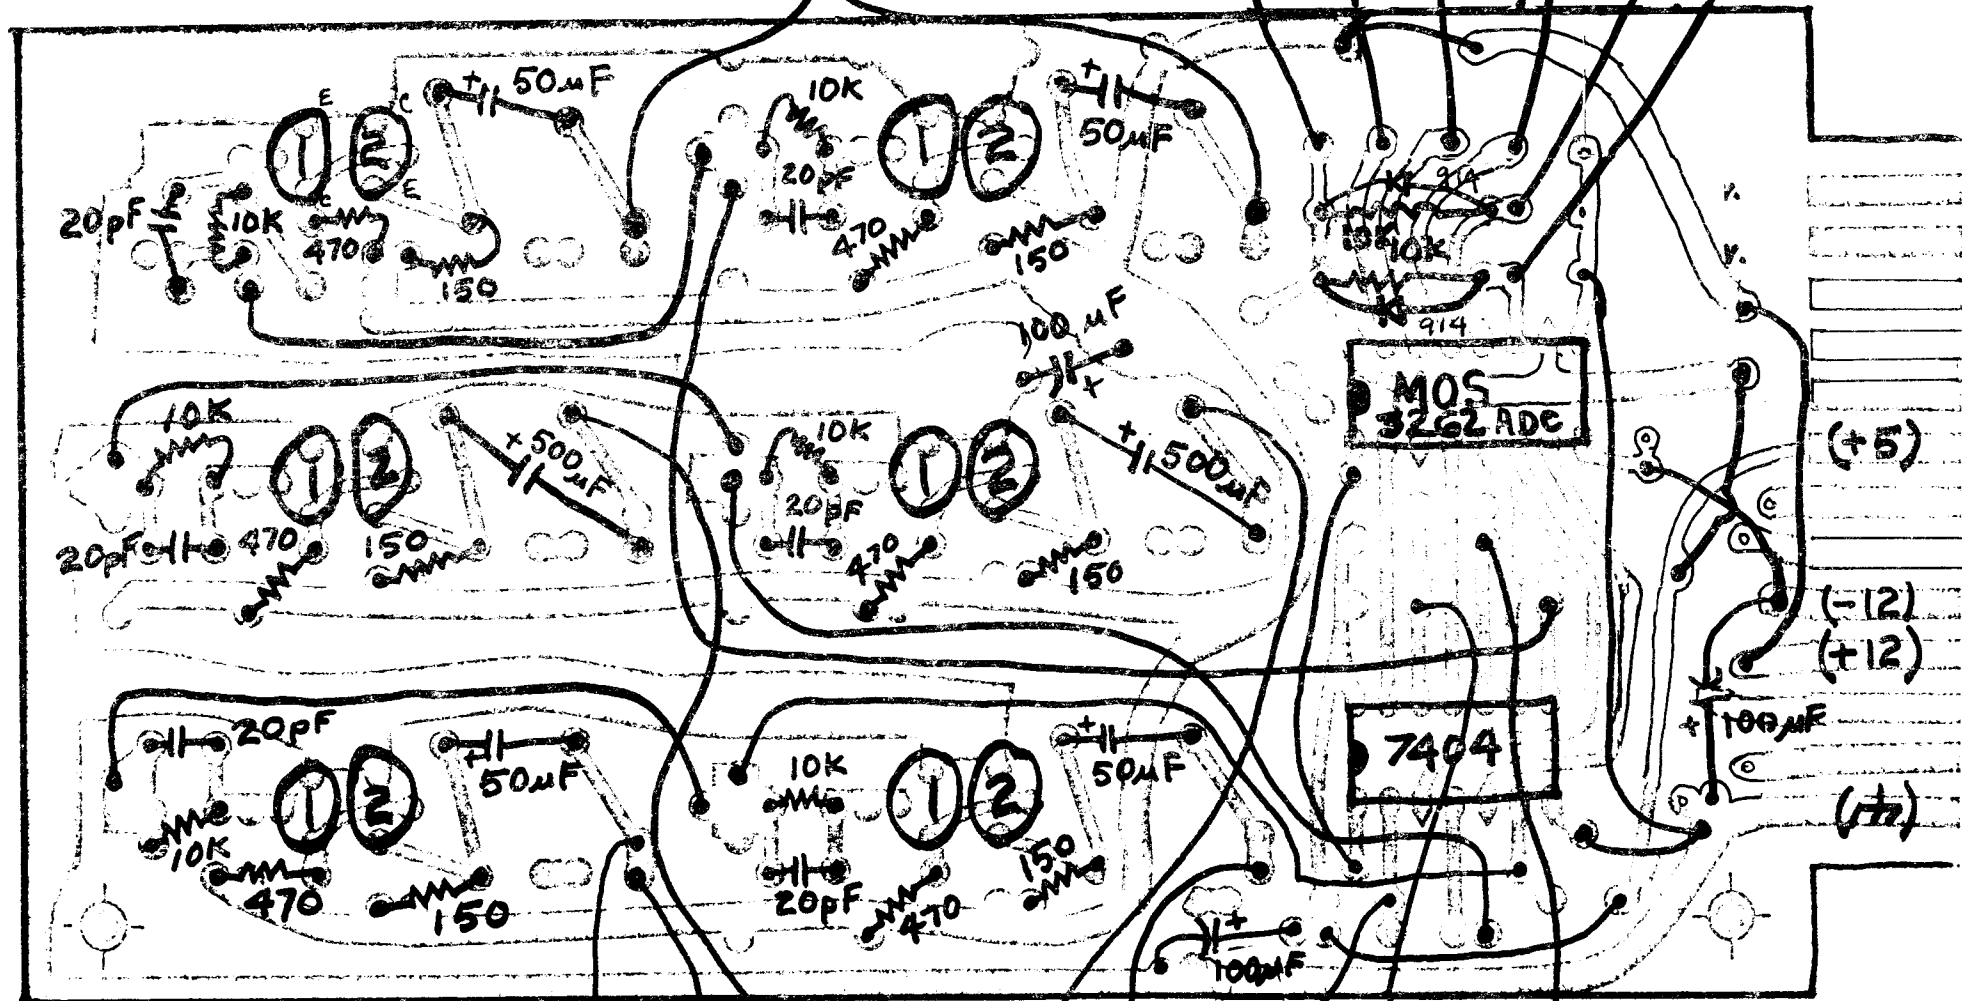 E
C
+ 50µF
1
2
C
E
20pF
10K
470
150
10K
1
2
+
50µF
20pF
470
150
914
10K
10K
914
100µF
+
MOS
3262 ADC
10K
1
2
+ 500µF
20pF
470
150
10K
1
2
+ 500µF
20pF
470
150
(+5)
(-12)
(+12)
+ 100µF
20pF
1
2
+
50µF
10K
470
150
10K
1
2
+
50µF
20pF
470
150
7404
+
100µF